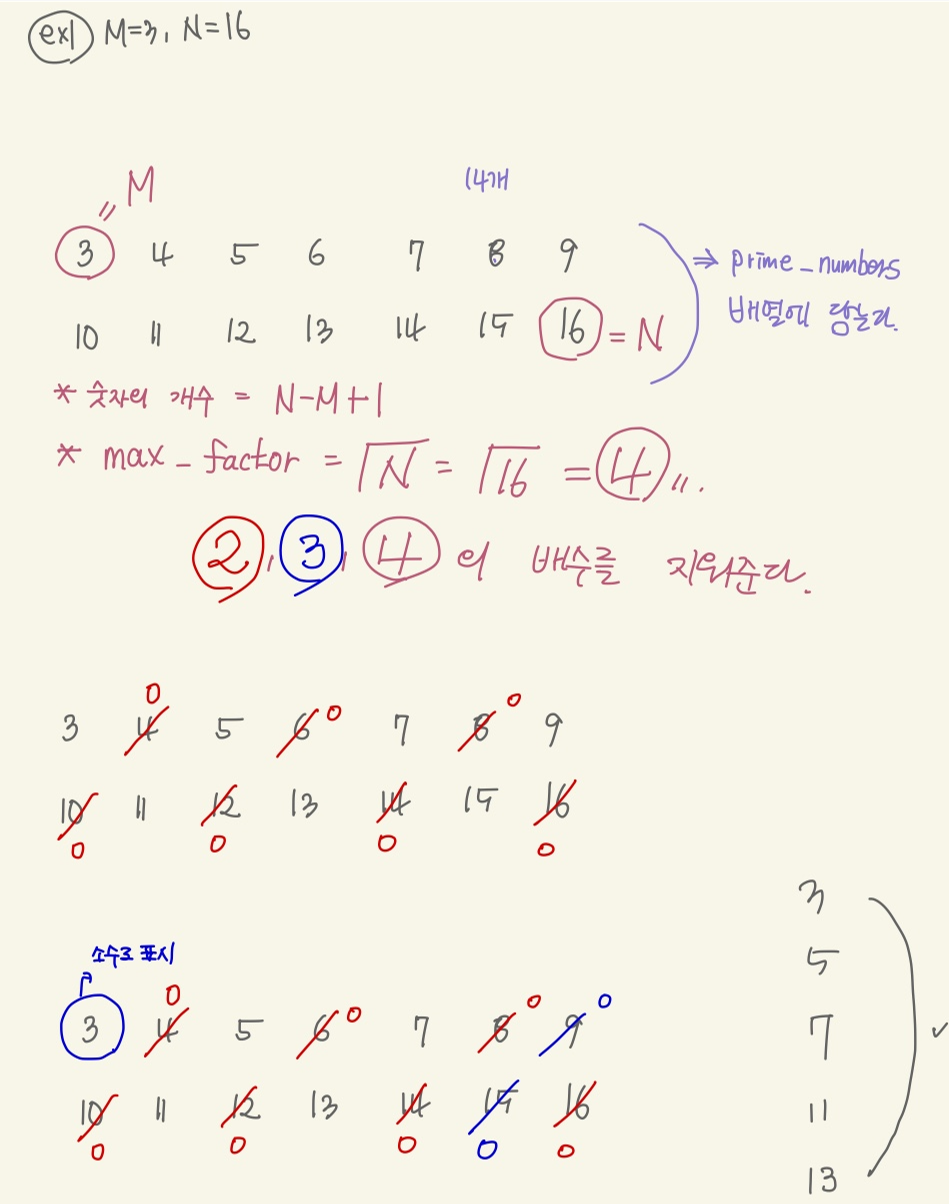 ex1 M=3, N=16
M
14개
"
3 4 5 6 7 8 9
⇒ prime_numbers
배열에 담는다.
10 11 12 13 14 15 16 = N
* 숫자의 개수 = N-M+1
* max_factor = √N = √16 = 4 〃.
2, 3, 4 의 배수를 지워준다.
0 0 0
3 4 5 6 7 8 9
10 11 12 13 14 15 16
0 0 0 0
소수로 표시
0 0 0 0
3 4 5 6 7 8 9
10 11 12 13 14 15 16
0 0 0 0 0
3
5
7
11
13